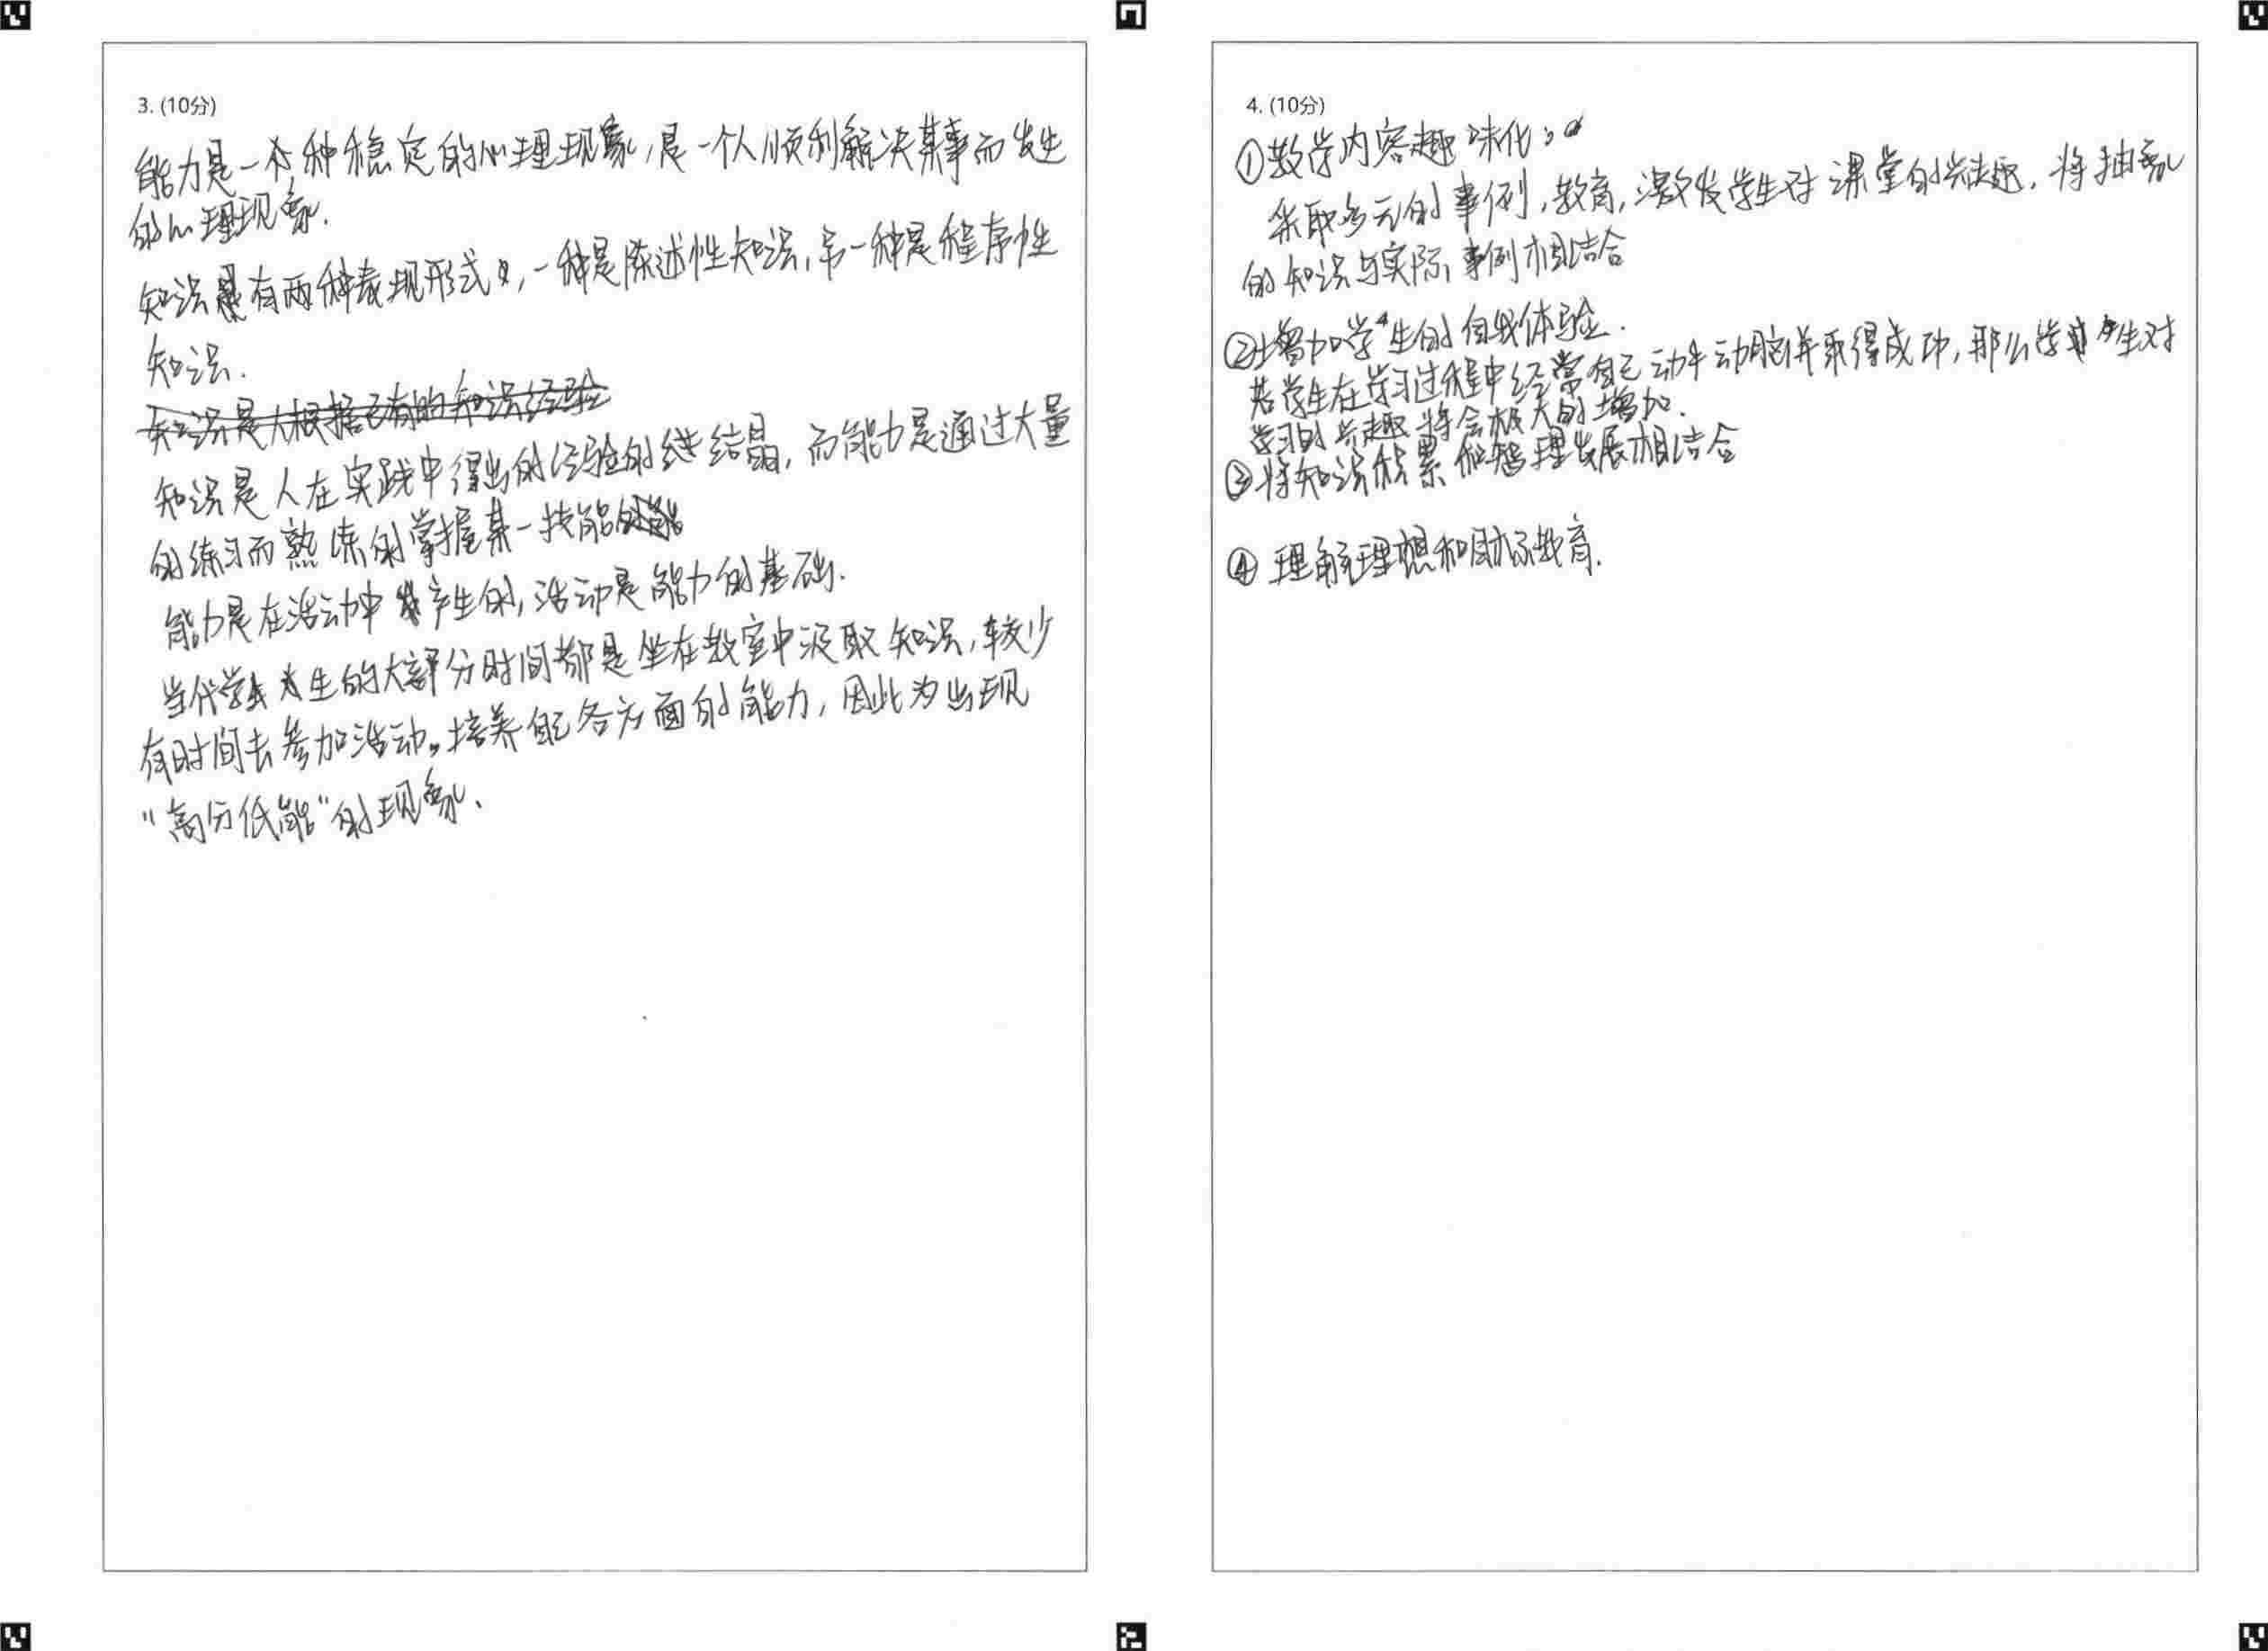 3. (10分)
能力是一种稳定的心理现象,是一个人顺利解决某事而发生
的心理现象.
知识有两种表现形式,一种是陈述性知识,另一种是程序性
知识.
知识是人根据已有的知识经验
知识是人在实践中得出的经验的结晶,而能力是通过大量
的练习而熟练的掌握某一技能
能力是在活动中产生的,活动是能力的基础.
当代学生的大部分时间都是坐在教室中汲取知识,较少
有时间去参加活动。培养自己各方面的能力,因此为出现
"高分低能"的现象.
4. (10分)
①教学内容趣味化:
采取多元的事例,教育,激发学生对课堂的兴趣.将抽象
的知识与实际事例相结合
②增加学生的自我体验.
若学生在学习过程中经常自己动手动脑并取得成功,那么学生对
学习的兴趣将会极大的增加.
③将知识积累和智理发展相结合
④理解理想和目标教育.